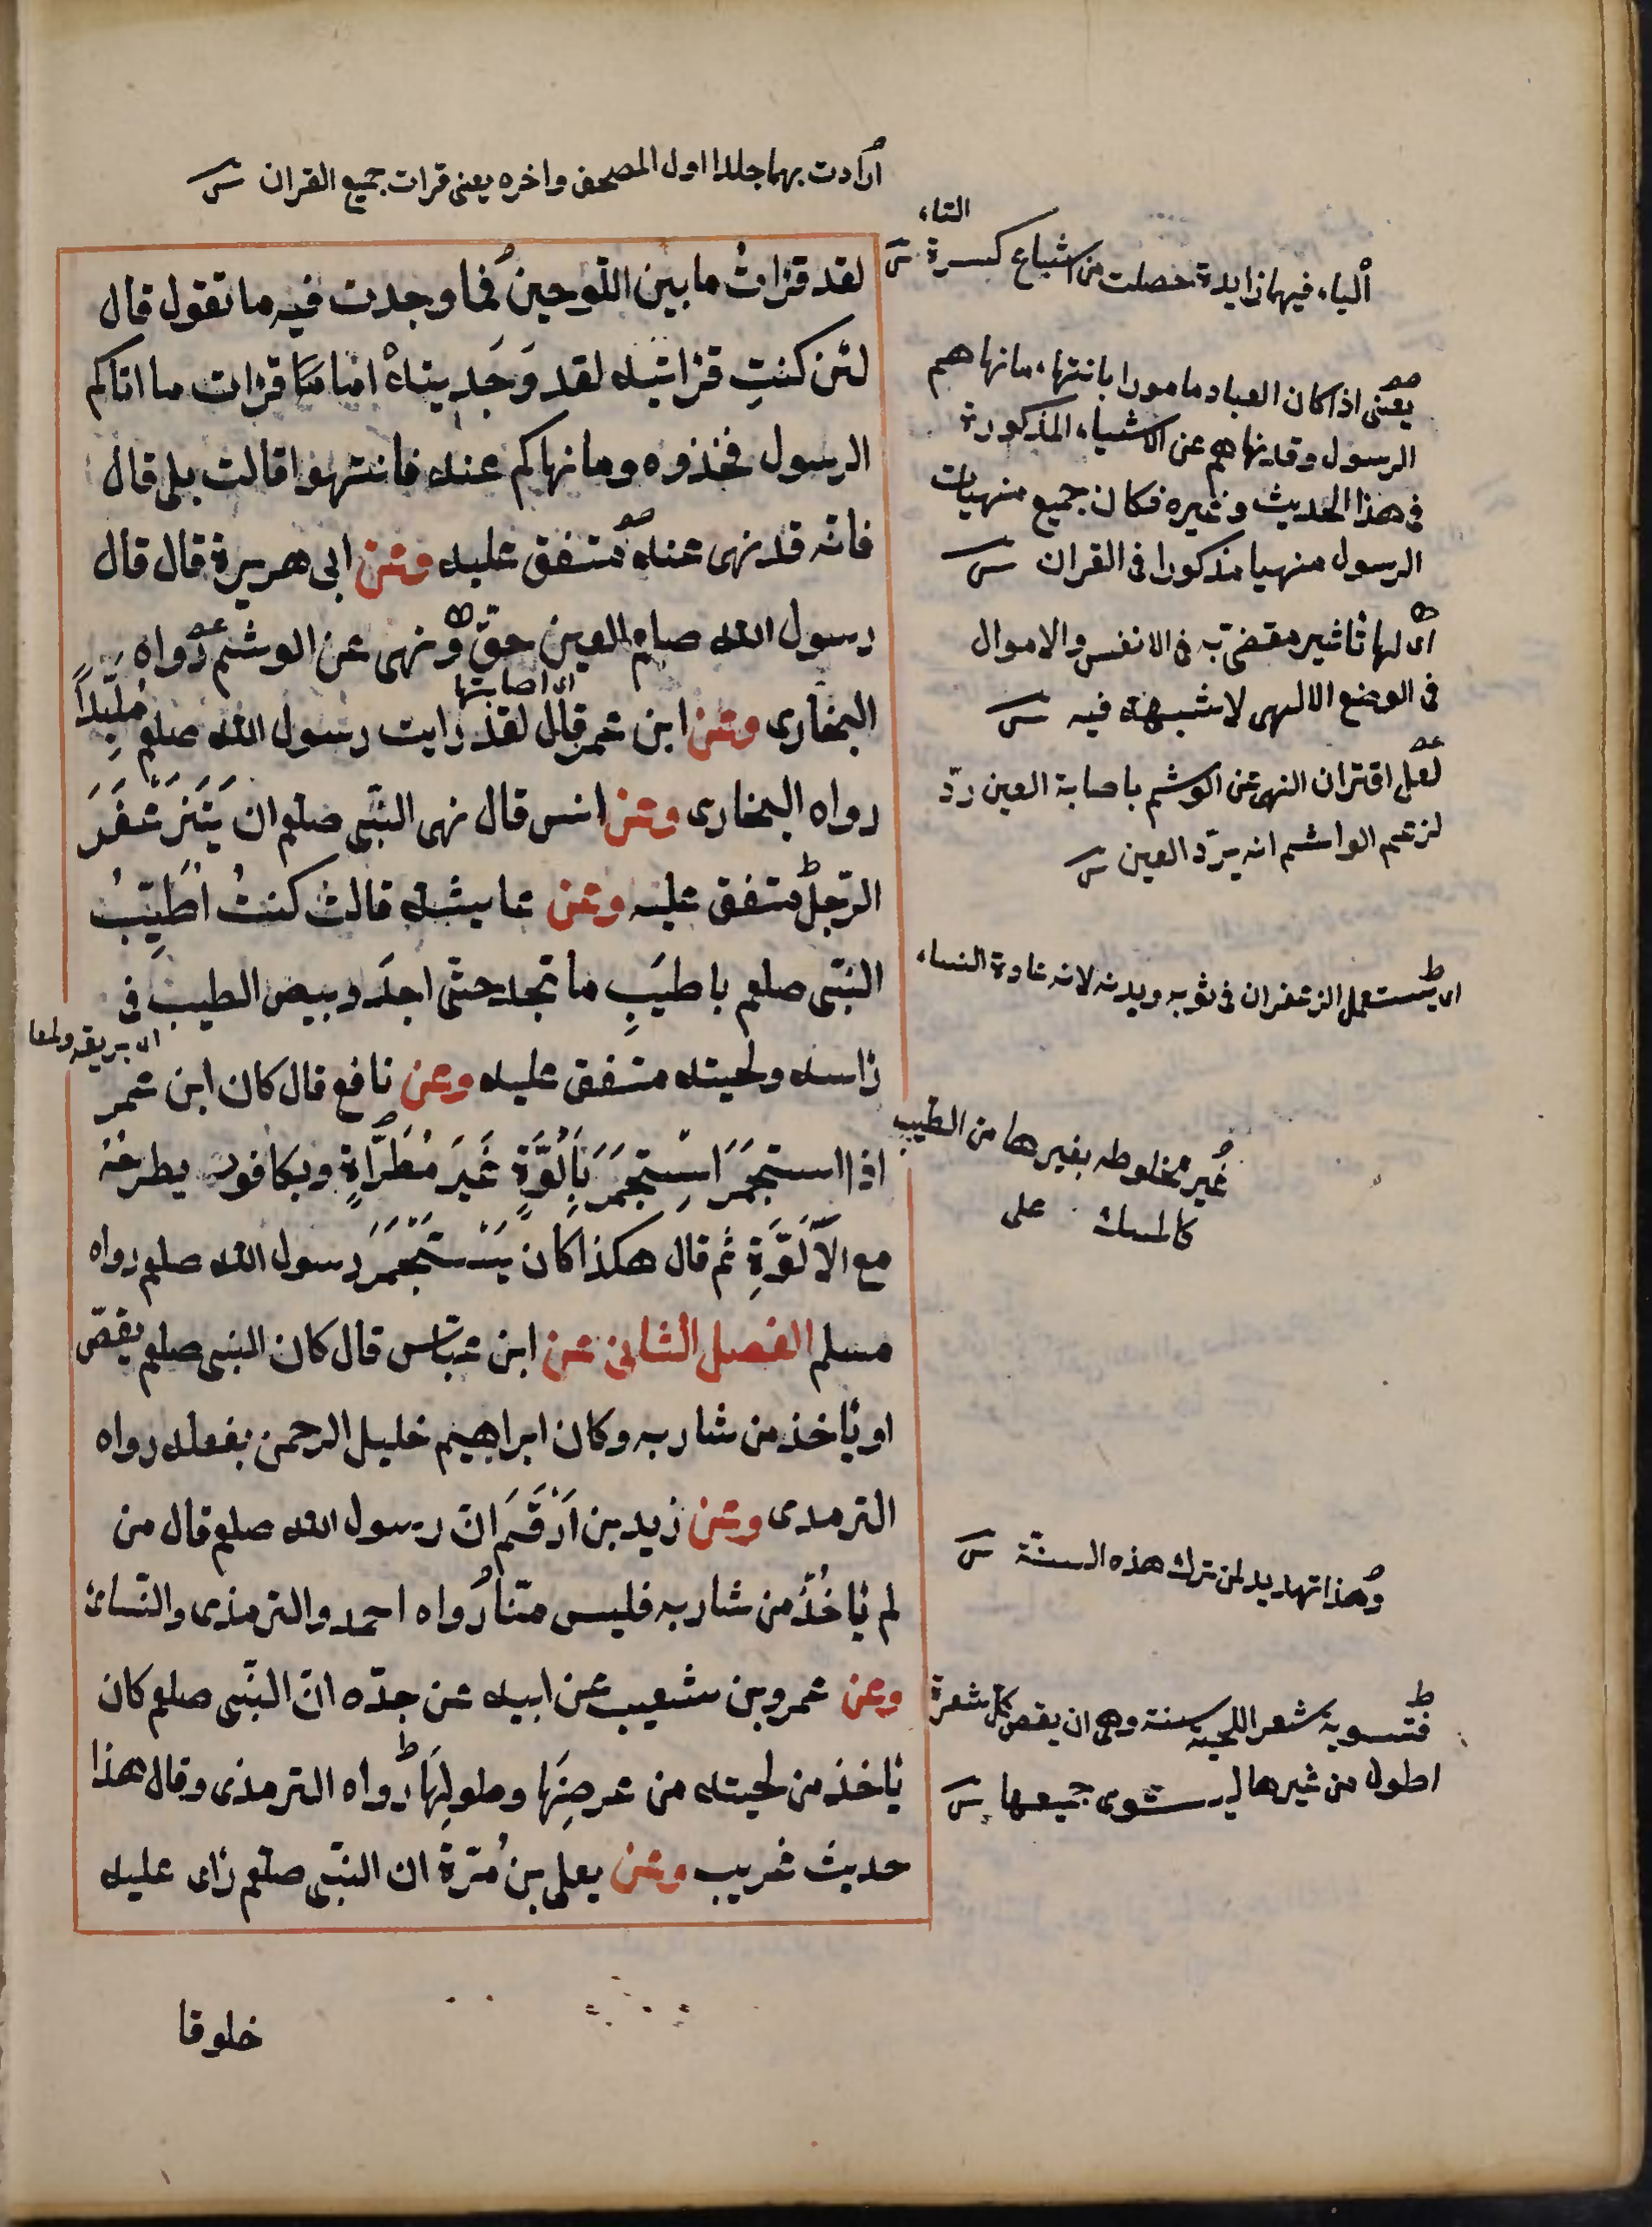 ارادت بهما جلدا اول المصحف واخره يعنى قرات جميع القران
لقد قرات ما بين اللوحين فما وجدت فيه ما تقول قال
لئن كنت قراتيه لقد وجدتيه اما قرات ما اتاكم
الرسول فخذوه وما نهاكم عنه فانتهوا قالت بلى قال
فانه قد نهى عنه متفق عليه وعن ابى هريرة قال قال
رسول الله صلعم العين حق ونهى عن الوشم رواه
اى اصابتها
البخارى وعن ابن عمر قال لقد رايت رسول الله صلعم ملبدا
رواه البخارى وعن انس قال نهى النبى صلعم ان يتزعفر
الرجل متفق عليه وعن عايشه قالت كنت اطيب
النبى صلعم باطيب ما تجد حتى اجد وبيص الطيب فى
اى بريقه
راسه ولحيته متفق عليه وعن نافع قال كان ابن عمر
اذا استجمر استجمر بالوة غير مطراة وبكافور يطرحه
مع الالوة ثم قال هكذا كان يستجمر رسول الله صلعم رواه
مسلم الفصل الثانى عن ابن عباس قال كان النبى صلعم يقص
او ياخذ من شاربه وكان ابراهيم خليل الرحمن يفعله رواه
الترمدى وعن زيد بن ارقم ان رسول الله صلعم قال من
لم ياخذ من شاربه فليس منا رواه احمد والترمذى والنسائ
وعن عمرو بن شعيب عن ابيه عن جده ان النبى صلعم كان
ياخذ من لحيته من عرضها وطولها رواه الترمذى وقال هذا
حديث غريب وعن يعلى بن مرة ان النبى صلعم راى عليه
خلوقا
الياء فيها زايدة حصلت من اشباع كسرة التاء
يعنى اذا كان العباد مامورا بانتهاء ما نهاهم
الرسول وقد نهاهم عن الاشياء المذكورة
فى هذا الحديث وغيره فكان جميع منهيات
الرسول منهيا مذكورا فى القران
اى لها تاثير مقضى به فى الانفس والاموال
فى الوضع الالهى لا شبهة فيه
لعل اقتران النهى عن الوشم باصابة العين رد
لزعم الواشم انه يرد العين
اى يستعمل الزعفران فى ثوبه وبدنه لانه عادة النساء
غير مخلوطه بغيرها من الطيب
كالمسك على
وهذا تهديد لمن ترك هذه السنة
فتسوية شعر اللحية سنة وهى ان يقص كل شعرة
اطول من غيرها ليستوى جميعها